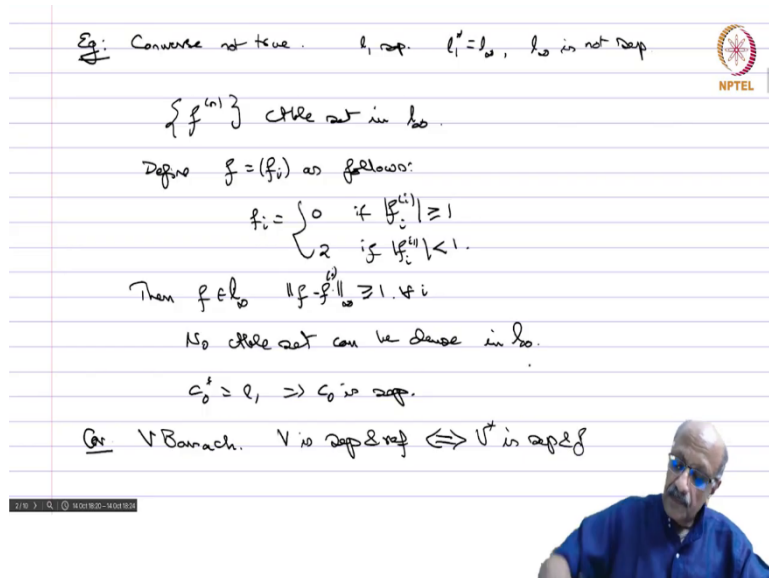 Eg: Converse not true. l₁ sep. l₁* = l∞, l∞ is not sep
NPTEL
{f⁽ⁿ⁾} ctble set in l∞.
Define f = (fᵢ) as follows:
fᵢ = { 0 if |fᵢ⁽ⁱ⁾| ≥ 1
2 if |fᵢ⁽ⁱ⁾| < 1.
Then f ∈ l∞ ‖f - f⁽ⁱ⁾‖∞ ≥ 1. ∀ i
No ctble set can be dense in l∞.
c₀* = l₁ ⇒ c₀ is sep.
Cor. V Banach. V is sep & ref ⇔ V* is sep & f
2/10 14 Oct 18:20–14 Oct 18:24